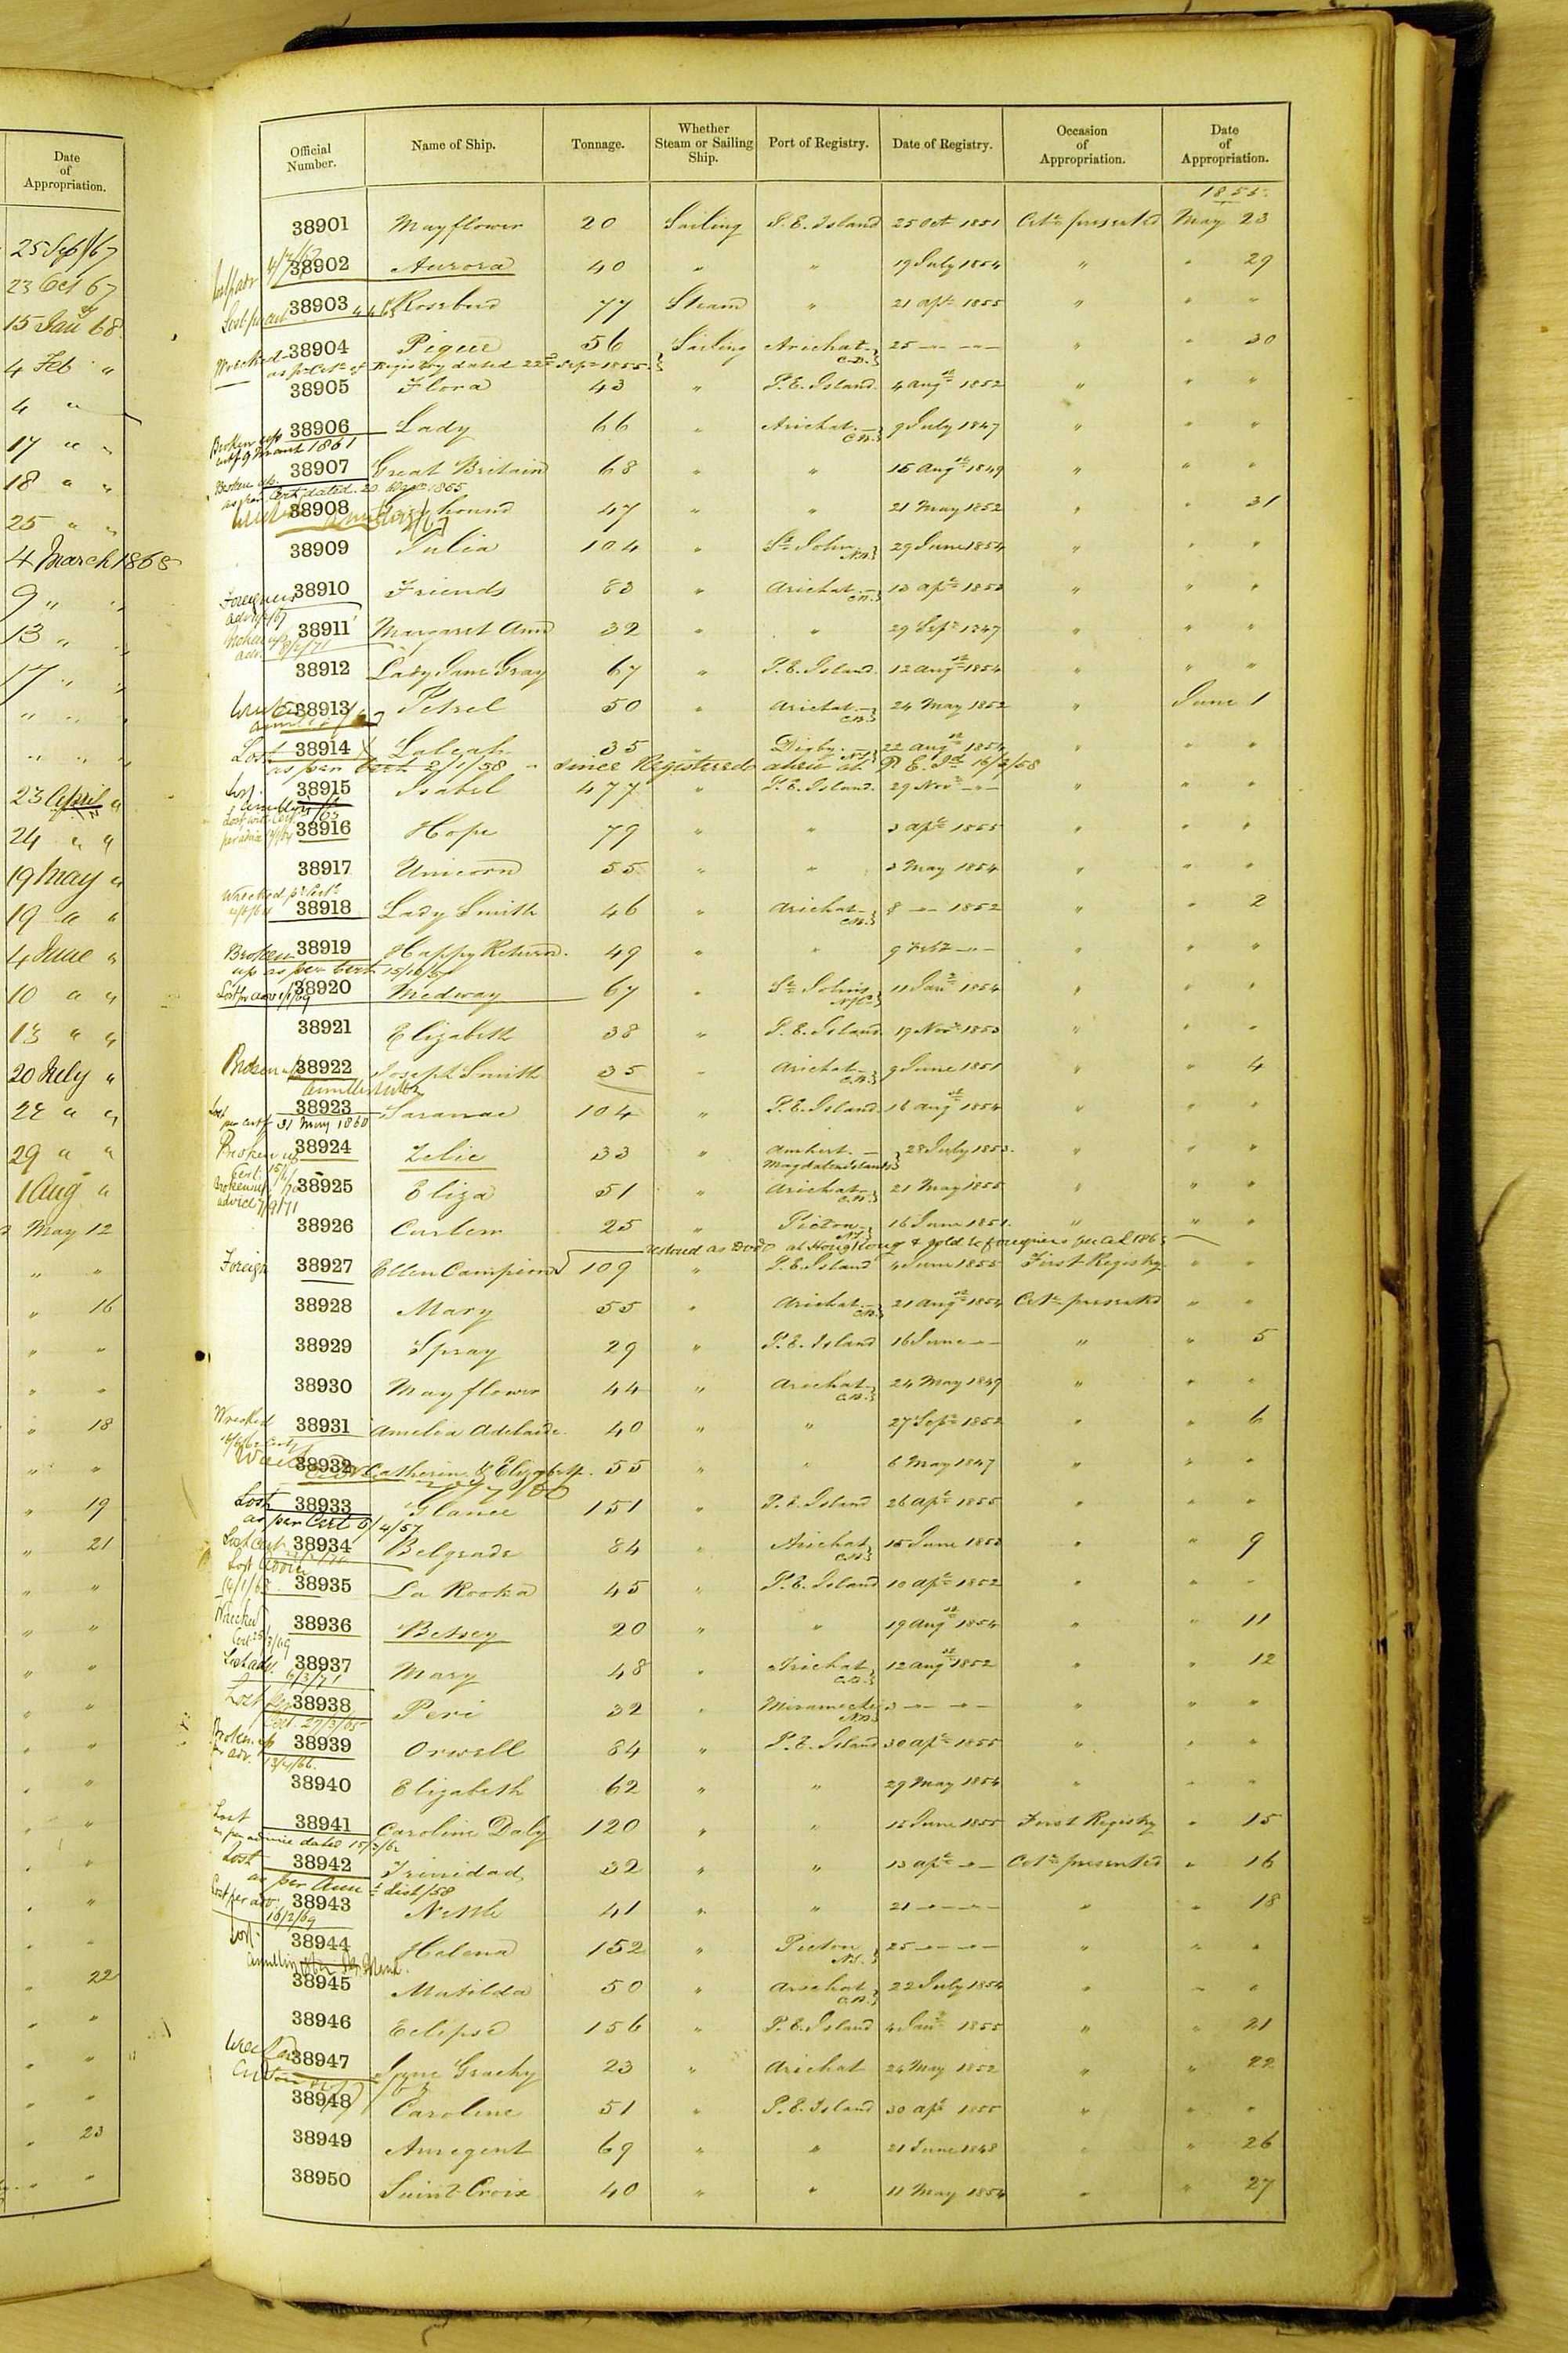 Date of Appropriation.
25 Sep /67
23 Oct 67
15 Jan 68
4 Feb "
4 "
17 " "
18 " "
25 " "
4 March 1868
9 " "
13 " "
17 " "
" " "
" " "
23 April "
24 " "
19 May "
19 " "
4 June "
10 " "
13 " "
20 July "
22 " "
29 " "
1 Aug "
May 12
" "
" 16
" "
" "
" 18
" "
" 19
" 21
" "
" "
" "
" "
" "
" "
" "
" "
" "
" "
" 22
" "
" "
" "
" 23
" "
Official Number. Name of Ship. Tonnage. Whether Steam or Sailing Ship. Port of Registry. Date of Registry. Occasion of Appropriation. Date of Appropriation.
1855
38901 Mayflower 20 Sailing P. E. Island 25 Oct 1851 Certe presented May 23
38902 Aurora 40 " " 19 July 1854 " " 29
38903 Rosebud 77 Steam " 21 Apl 1855 " " "
Lost pr Cert
38904 Pique 56 Sailing Arichat C.B. 25 " " " " 30
Wrecked as pr Certe of Registry dated 22d Sepr 1855
38905 Flora 43 " P. E. Island. 4 Augst 1852 " " "
38906 Lady 66 " Arichat C.B. 9 July 1847 " " "
Broken up certf 9 March 1861
38907 Great Britain 68 " " 15 Augst 1849 " " "
Broken up as per Cert dated 20 1855
38908 47 " " 21 May 1852 " " 31
38909 Julia 104 " St John N.B. 29 June 1854 " " "
38910 Friends 83 " Arichat C.B. 13 Apl 1853 " " "
Foreigners
38911 Margaret Ann 32 " " 29 Sepr 1847 " " "
38912 Lady Jane Gray 67 " P. E. Island. 12 Augst 1854 " " "
38913 Petrel 50 " Arichat C.B. 24 May 1852 " June 1
38914 35 " Digby N.S. 22 Augst 1854 " " "
Lost as per Cert 2/1/58 - Since Registered anew at P. E. Isd 16/2/58
38915 Isabel 477 " P. E. Island. 29 Novr " " " "
Lost
38916 Hope 79 " " 3 Apl 1855 " " "
38917 Unicorn 55 " " 3 May 1854 " " "
38918 Lady Smith 46 " Arichat C.B. 8 " 1852 " " 2
Wrecked pr Certe
38919 Happy Return. 49 " " 9 " " " "
Broken up as per Cert 15/10/57
38920 Medway 67 " St Johns N.F. 11 Jany 1854 " " "
Lost pr adv 1/1/69
38921 Elizabeth 38 " P. E. Island. 19 Novr 1853 " " "
38922 Joseph Smith 35 " Arichat C.B. 9 June 1851 " " 4
Broken up
38923 Saranac 104 " P. E. Island 16 Augst 1854 " " "
Lost per certf 31 May 1860
38924 Zelie 33 " Amherst Magdalen Islands 28 July 1853. " " "
Broken up Cert.
38925 Eliza 51 " Arichat C.B. 21 May 1855 " " "
Broken up advice 7/9/71
38926 Curlew 25 " Pictou N.S. 16 June 1851. " " "
at Hong Kong & sold to foreigners per
38927 Ellen Campion 109 " P. E. Island 4 June 1855 First Registry " "
Foreign
38928 Mary 55 " Arichat C.B. 21 Augst 1854 Certe presented " "
38929 Spray 29 " P. E. Island 16 June " " " 5
38930 Mayflower 44 " Arichat C.B. 24 May 1849 " " "
38931 Amelia Adelaide. 40 " " 27 Sepr 1852 " " 6
Wrecked
38932 Catherine & Elizabeth. 55 " " 6 May 1847 " " "
38933 Glance 151 " P. E. Island 26 Apl 1855 " " "
Lost as per Cert 6/4/57
38934 Belgrade 84 " Arichat C.B. 15 June 1853 " " 9
Lost Cert
38935 La Rooka 45 " P. E. Island 10 Apl 1852 " " "
Lost Advice
38936 Betsey 20 " " 19 Augst 1854 " " 11
Wrecked Cert 25/3/69
38937 Mary 48 " Arichat C.B. 12 Augst 1852 " " 12
Lost adv. 6/3/71
38938 Peri 32 " Miramichi N.B. 3 " " " " "
Lost per Cert. 27/3/65
38939 Orwell 84 " P. E. Island 30 Apl 1855 " " "
Broken up
38940 Elizabeth 62 " " 29 May 1854 " " "
38941 Caroline Daly 120 " " 15 June 1855 First Registry " 15
Lost as per advice dated 15/3/62
38942 Trinidad 32 " " 13 Apl " Certe presented " 16
Lost as per Annl List/58
38943 Nettle 41 " " 21 " " " " 18
Lost per adv. 16/2/69
38944 Helena 152 " Pictou N.S. 25 " " " " "
Lost
38945 Matilda 50 " Arichat C.B. 22 July 1854 " " "
38946 Eclipse 156 " P. E. Island 4 Jany 1855 " " 21
38947 23 " Arichat 24 May 1852 " " 22
38948 Caroline 51 " P. E. Island 30 Apl 1855 " " "
38949 69 " " 21 June 1848 " " 26
38950 Saint Croix 40 " " 11 May 1854 " " 27